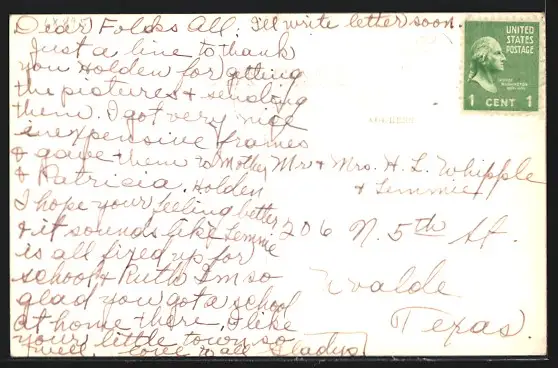 Dear Folks All: I'll write letter soon.
Just a line to thank
you Holden for getting
the pictures & sending
them. I got very nice
inexpensive frames
& gave them to Mother
& Patricia. Holden
I hope your feeling better
& it sounds like Lemmie
is all fired up for
school & Ruth I'm so
glad you got a school
at home there, I like
your little town so
well. Love to all Gladys
UNITED
STATES
POSTAGE
1 CENT 1
Mr & Mrs. H. L. Whipple
& Lemmie
206 N. 5th St.
Uvalde
Texas.